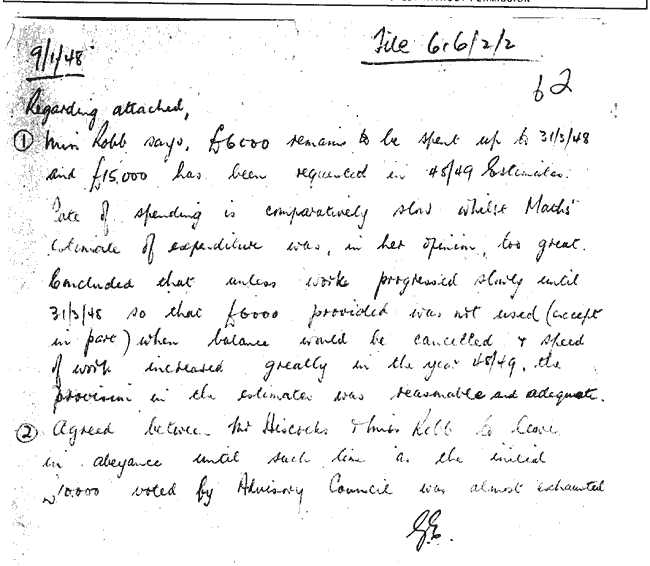 WITHOUT PERMISSION
9/1/48
File 6.6/2/2
62
Regarding attached,
① Miss Robb says, £6000 remains to be spent up to 31/3/48
and £15,000 has been requested in 48/49 Estimates.
Rate of spending is comparatively slow whilst Maths'
estimate of expenditure was, in her opinion, too great.
Concluded that unless works progressed slowly until
31/3/48 so that £6000 provided was not used (except
in part) when balance would be cancelled & speed
of work increased greatly in the year 48/49, the
provision in the estimates was reasonable and adequate.
② Agreed between Mr Hiscocks & Miss Robb to leave
in abeyance until such time as the initial
10.000 voted by Advisory Council was almost exhausted